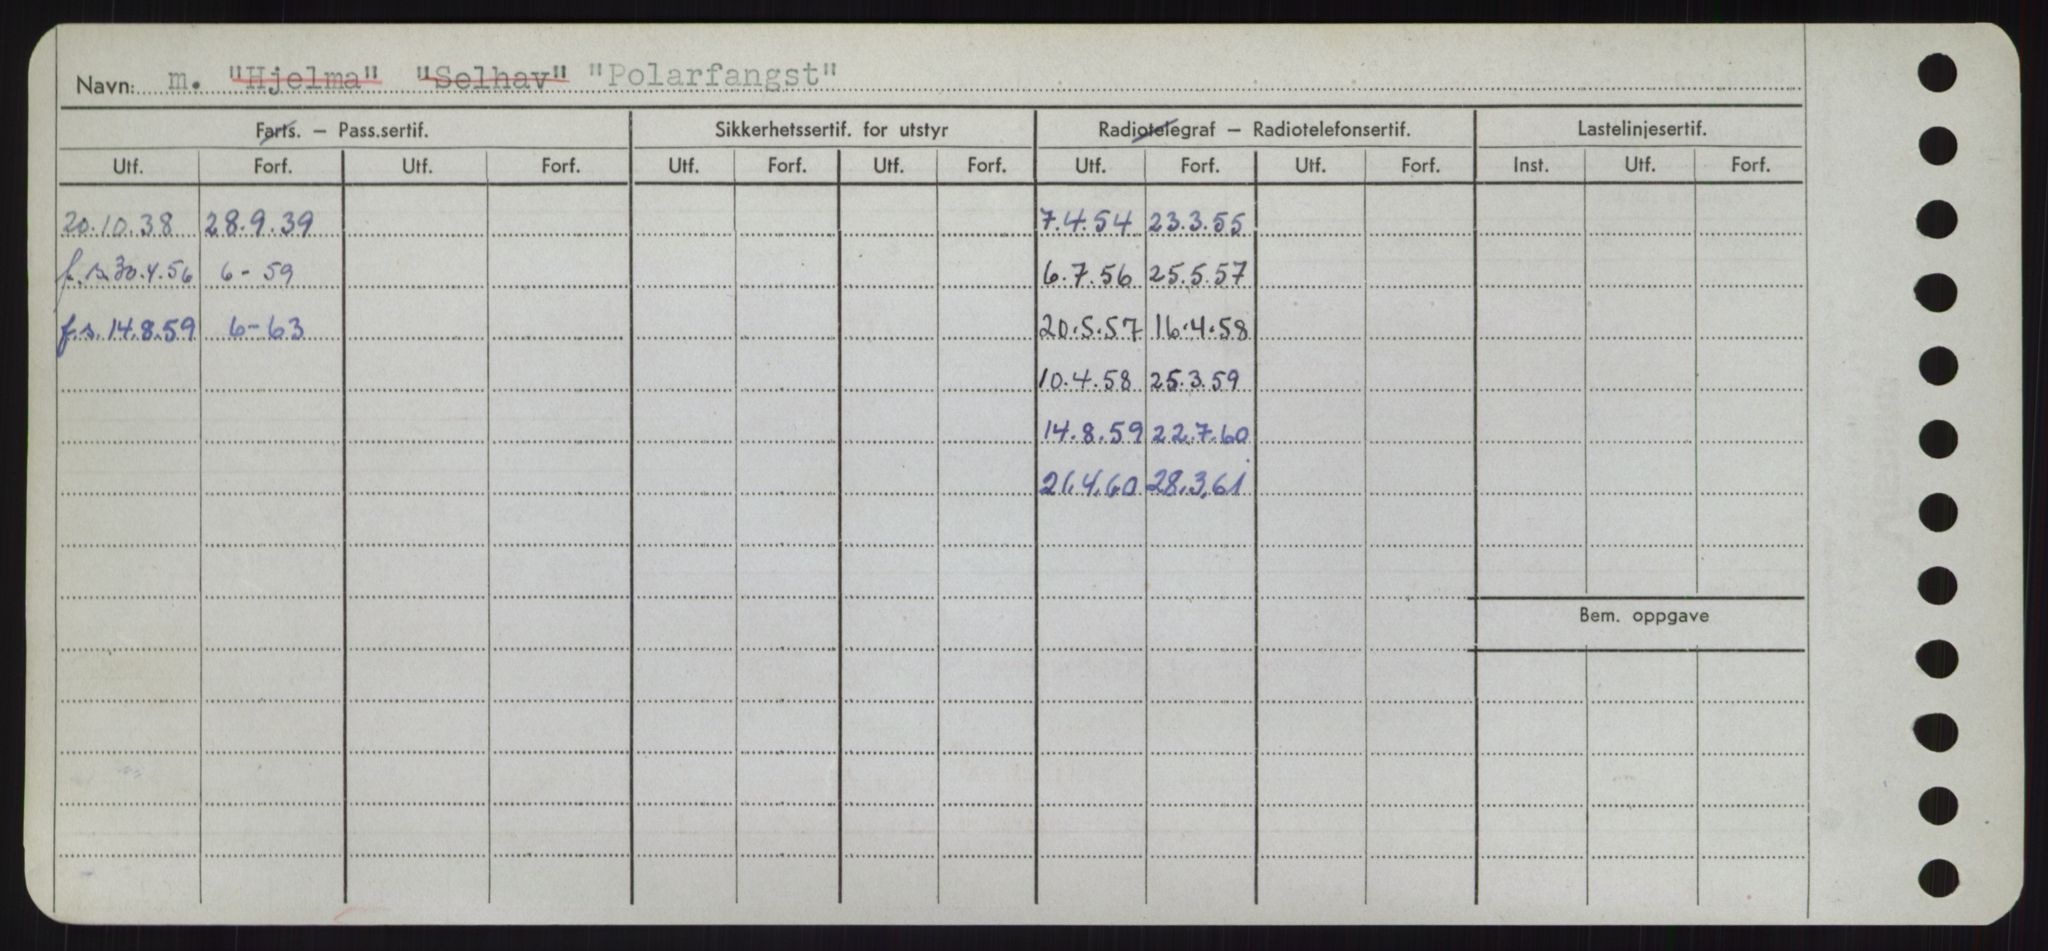 Navn: m. "Hjelma" "Selhav" "Polarfangst"
Farts. – Pass.sertif. Sikkerhetssertif. for utstyr Radiotelegraf – Radiotelefonsertif. Lastelinjesertif.
Utf. Forf. Utf. Forf. Utf. Forf. Utf. Forf. Utf. Forf. Utf. Forf. Inst. Utf. Forf.
20.10.38 28.9.39 7.4.54 23.3.55
f.s. 30.4.56 6-59 6.7.56 25.5.57
f.s. 14.8.59 6-63 20.5.57 16.4.58
10.4.58 25.3.59
14.8.59 22.7.60
21.4.60 28.3.61
Bem. oppgave